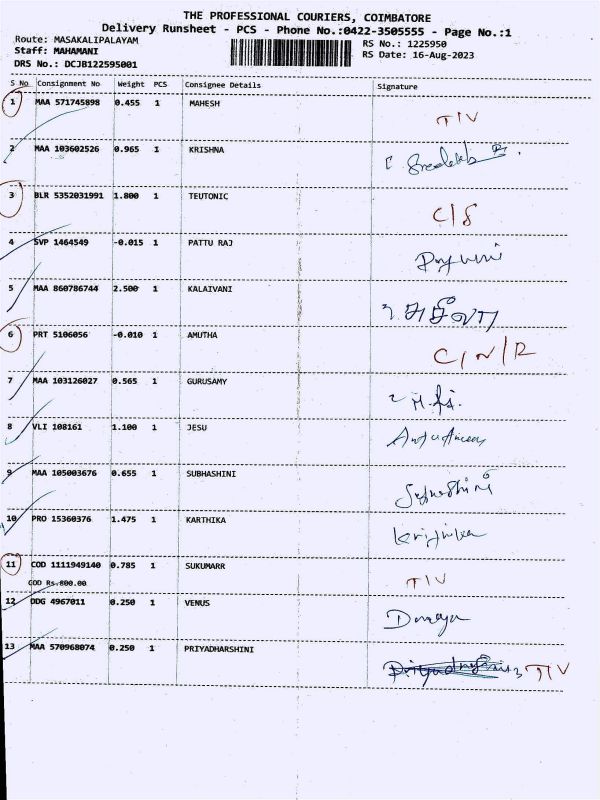 THE PROFESSIONAL COURIERS, COIMBATORE
Delivery Runsheet - PCS - Phone No.:0422-3505555 - Page No.:1
Route: MASAKALIPALAYAM
RS No.: 1225950
Staff: MAHAMANI
RS Date: 16-Aug-2023
DRS No.: DCJB122595001
S No Consignment No Weight PCS Consignee Details Signature
1 MAA 571745898 0.455 1 MAHESH TIV
2 MAA 103602526 0.965 1 KRISHNA
3 BLR 5352031991 1.800 1 TEUTONIC C/S
4 SVP 1464549 -0.015 1 PATTU RAJ
5 MAA 860786744 2.500 1 KALAIVANI
6 PRT 5106056 -0.010 1 AMUTHA C/N/R
7 MAA 103126027 0.565 1 GURUSAMY
8 VLI 108161 1.100 1 JESU
9 MAA 105003676 0.655 1 SUBHASHINI
10 PRO 15360376 1.475 1 KARTHIKA
11 COD 1111949140 0.785 1 SUKUMARR TIV
COD Rs.800.00
12 DDG 4967011 0.250 1 VENUS
13 MAA 570968074 0.250 1 PRIYADHARSHINI TIV